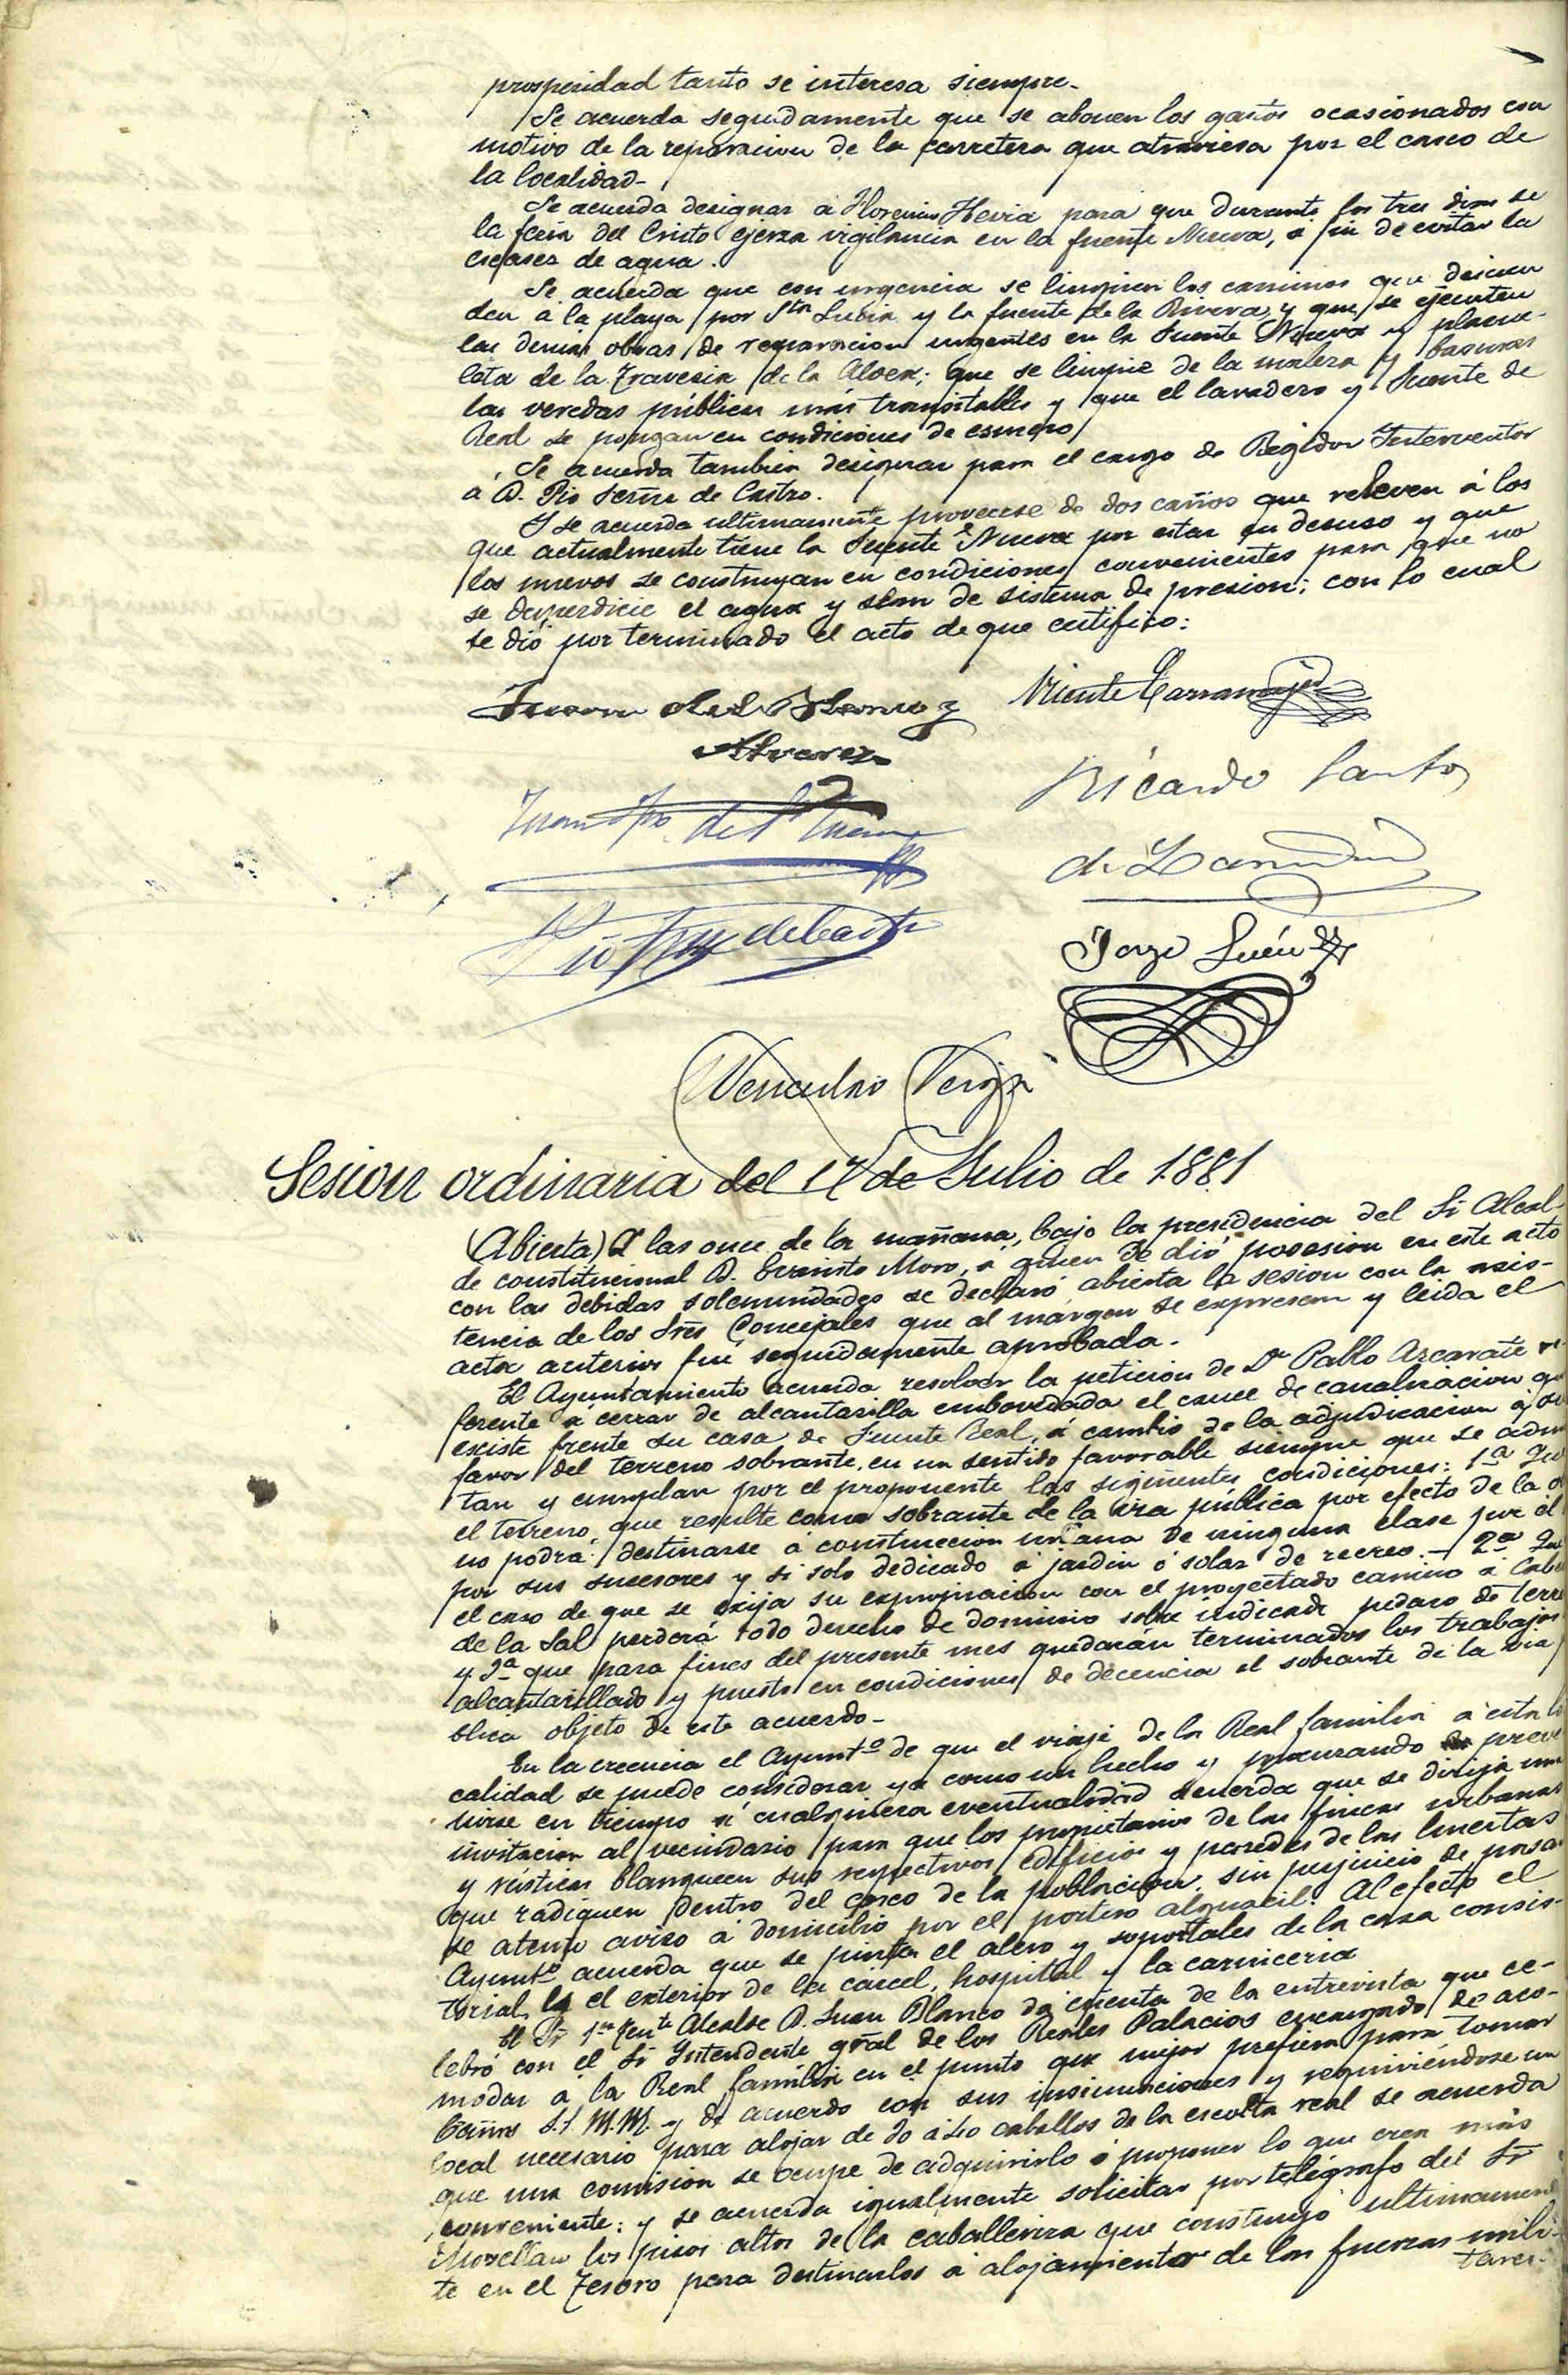 prosperidad tanto se interesa siempre.
Se acuerda seguidamente que se abonen los gastos ocasionados con
motivo de la reparacion de la carretera que atraviesa por el casco de
la localidad.
Se acuerda designar á Florencio Hevia para que durante los tres dias de
la feria del Cristo ejerza vigilancia en la fuente Nueva, a fin de evitar la
escasez de agua.
Se acuerda que con urgencia se limpien los caminos que descien
den á la playa por Sta Lucia y la fuente de la Rivera y que se ejecuten
las demas obras de reparacion urgentes en la Fuente Nueva y plazue-
leta de la Travesia de la Alven; que se limpie de la maleza y basuras
las veredas públicas más transitables y que el lavadero y Fuente de
Real se pongan en condiciones de esmero
Se acuerda tambien designar para el cargo de Regidor Interventor
á D. Pio Fernz de Castro.
Y se acuerda ultimamente proveerse de dos caños que releven á los
que actualmente tiene la Fuente Nueva por estar en desuso y que
los nuevos se construyan en condiciones convenientes para que no
se desperdicie el agua y sean de sistema de presion; con lo cual
se dió por terminado el acto de que certifico:
Juan del Blanco y Vicente Carranceja
Alvarez
Ricardo Santos
Juan Fco. del
de
Pio Fernz de Castro
Jorge
Wenceslao Vergara
Sesion ordinaria del 17 de Julio de 1.881
(Abierta) Á las once de la mañana, bajo la presidencia del Sr Alcal-
de constitucional D. Evaristo Moro, á quien se dió posesion en este acto
con las debidas solemnidades se declaró abierta la sesion con la asis-
tencia de los Sres Concejales que al márgen se expresan y leida el
acta anterior fué seguidamente aprobada.
El Ayuntamiento acuerda resolver la peticion de Dn Pablo Azcarate re-
ferente á cerrar de alcantarilla embovedada el cauce de canalizacion que
existe frente su casa de Fuente Real, á cambio de la adjudicacion á su
favor del terreno sobrante, en un sentido favorable siempre que se admi
tan y cumplan por el proponente las siguientes condiciones: 1ª Que
el terreno que resulte como sobrante de la via pública por efecto de la
no podrá destinarse á construccion urbana de ninguna clase por él
por sus sucesores y si solo dedicado á jardin ó solar de recreo. - 2ª Que
el caso de que se exija su expropiacion con el proyectado camino á Cabo
de la Sal perderá todo derecho de dominio sobre indicado pedazo de terre
y 3ª que para fines del presente mes quedarán terminados los trabajos
alcantarillado y puesto en condiciones de decencia el sobrante de la via
blica objeto de este acuerdo.
En la creencia el Ayuntº de que el viaje de la Real familia á esta lo
calidad se puede considerar ya como un hecho y procurando preve
nirse en tiempo á cualquiera eventualidad acuerda que se dirija una
invitacion al vecindario para que los propietarios de las fincas urbanas
y rústicas blanqueen sus respectivos edificios y paredes de las huertas
que radiquen dentro del casco de la poblacion, sin perjuicio de pasar
se atento aviso á domicilio por el portero alguacil. Al efecto el
Ayuntº acuerda que se pinte el alero y soportales de la casa consis-
torial, y el exterior de la cárcel, hospital y la carniceria
El Sr 1er Tente Alcalde D. Juan Blanco dá cuenta de la entrevista que ce-
lebró con el Sr Intendente gral de los Reales Palacios encargado de aco-
modar á la Real familia en el punto que mejor prefiera para tomar
baños S.S. M.M. y de acuerdo con sus insinuaciones y requiriéndose un
local necesario para alojar de 30 á 40 caballos de la escolta real se acuerda
que una comision se ocupe de adquirirlo ó proponer lo que crea más
conveniente: y se acuerda igualmente solicitar por telégrafo del Sr
Movellan los pisos altos de la caballeriza que construyó ultimamen
te en el Tesoro para destinarlos á alojamiento de las fuerzas mili-
tares.